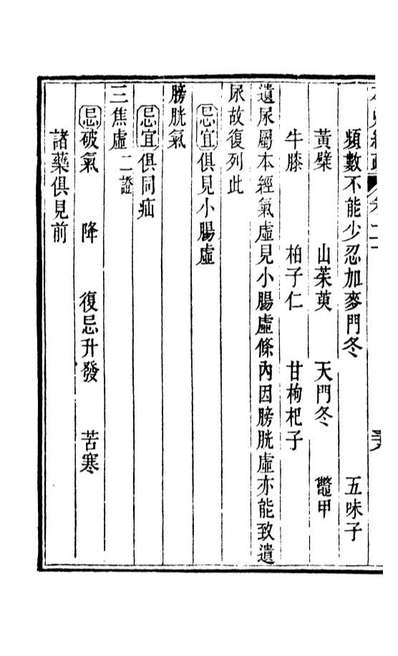 頻數不能少忍加麥門冬　五味子
黃檗　山茱萸　天門冬　鼈甲
牛膝　柏子仁　甘枸杞子
遺尿屬本經氣虛見小腸虛條內因膀胱虛亦能致遺
尿故復列此
忌宜俱見小腸虛
膀胱氣
忌宜俱同疝
三焦虛二證
忌破氣　降　復忌升發　苦寒
諸藥俱見前